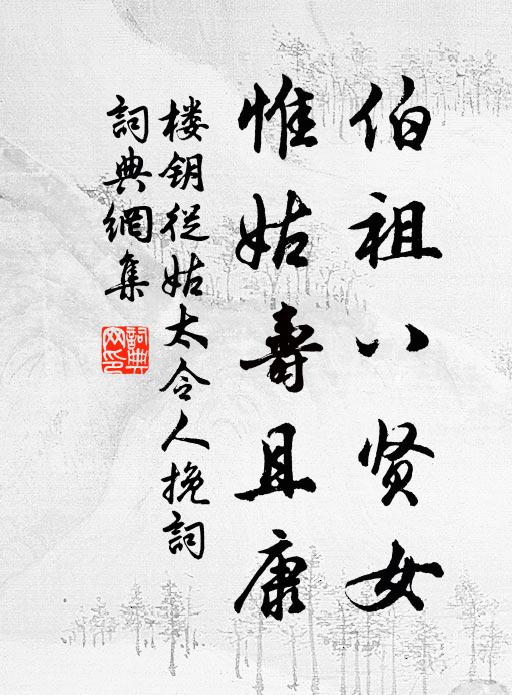 伯祖八贤女
惟姑壽且康
楼钥从姑太令人挽詞
詞典網集
詞典网印